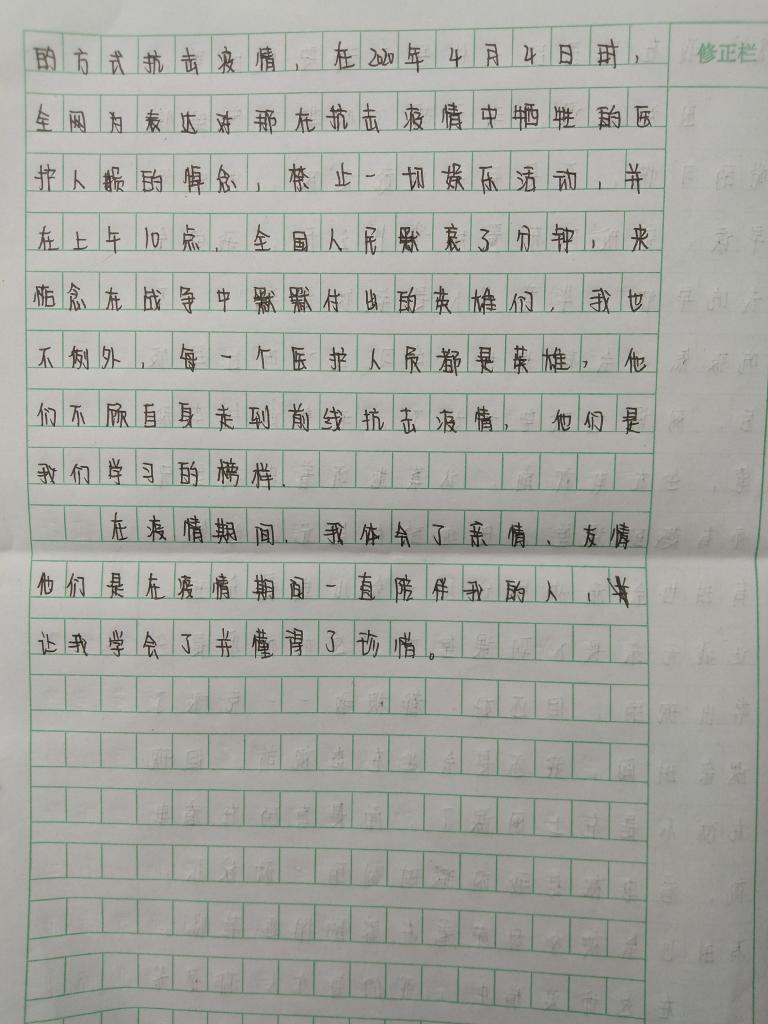 修正栏
的方式抗击疫情，在2020年4月4日时，
全网为表达对那在抗击疫情中牺牲的医
护人员的悼念，禁止一切娱乐活动，并
在上午10点，全国人民默哀3分钟，来
悼念在战争中默默付出的英雄们，我也
不例外，每一个医护人员都是英雄，他
们不顾自身走到前线抗击疫情，他们是
我们学习的榜样.
在疫情期间，我体会了亲情、友情
他们是在疫情期间一直陪伴我的人，
让我学会了并懂得了珍惜。